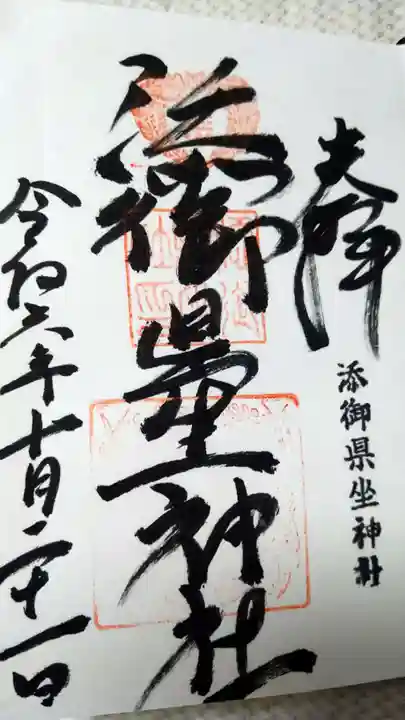 奉拝
添御県坐神社
添御県坐神社
令和六年十月二十一日